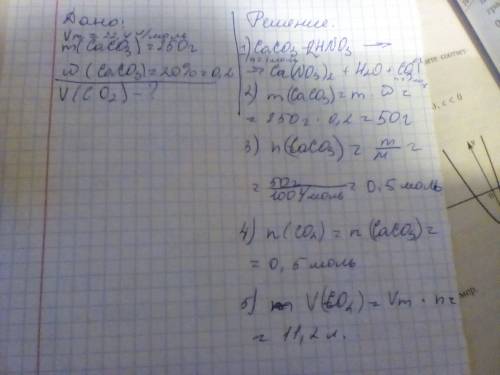 Дано:
Vm = 22,4 л/моль
m(CaCO3) = 250г
ω(CaCO3) = 20% = 0,2
V(CO2) - ?
Решение.
1) CaCO3 + 2HNO3 →
n = 1 моль
→ Ca(NO3)2 + H2O + CO2↑
n = 1 моль
2) m(CaCO3) = m · ω =
= 250г · 0,2 = 50г
3) n(CaCO3) = m/M =
= 50г / 100г/моль = 0,5 моль
4) n(CO2) = n(CaCO3) =
= 0,5 моль
5) V(CO2) = Vm · n =
= 11,2 л.